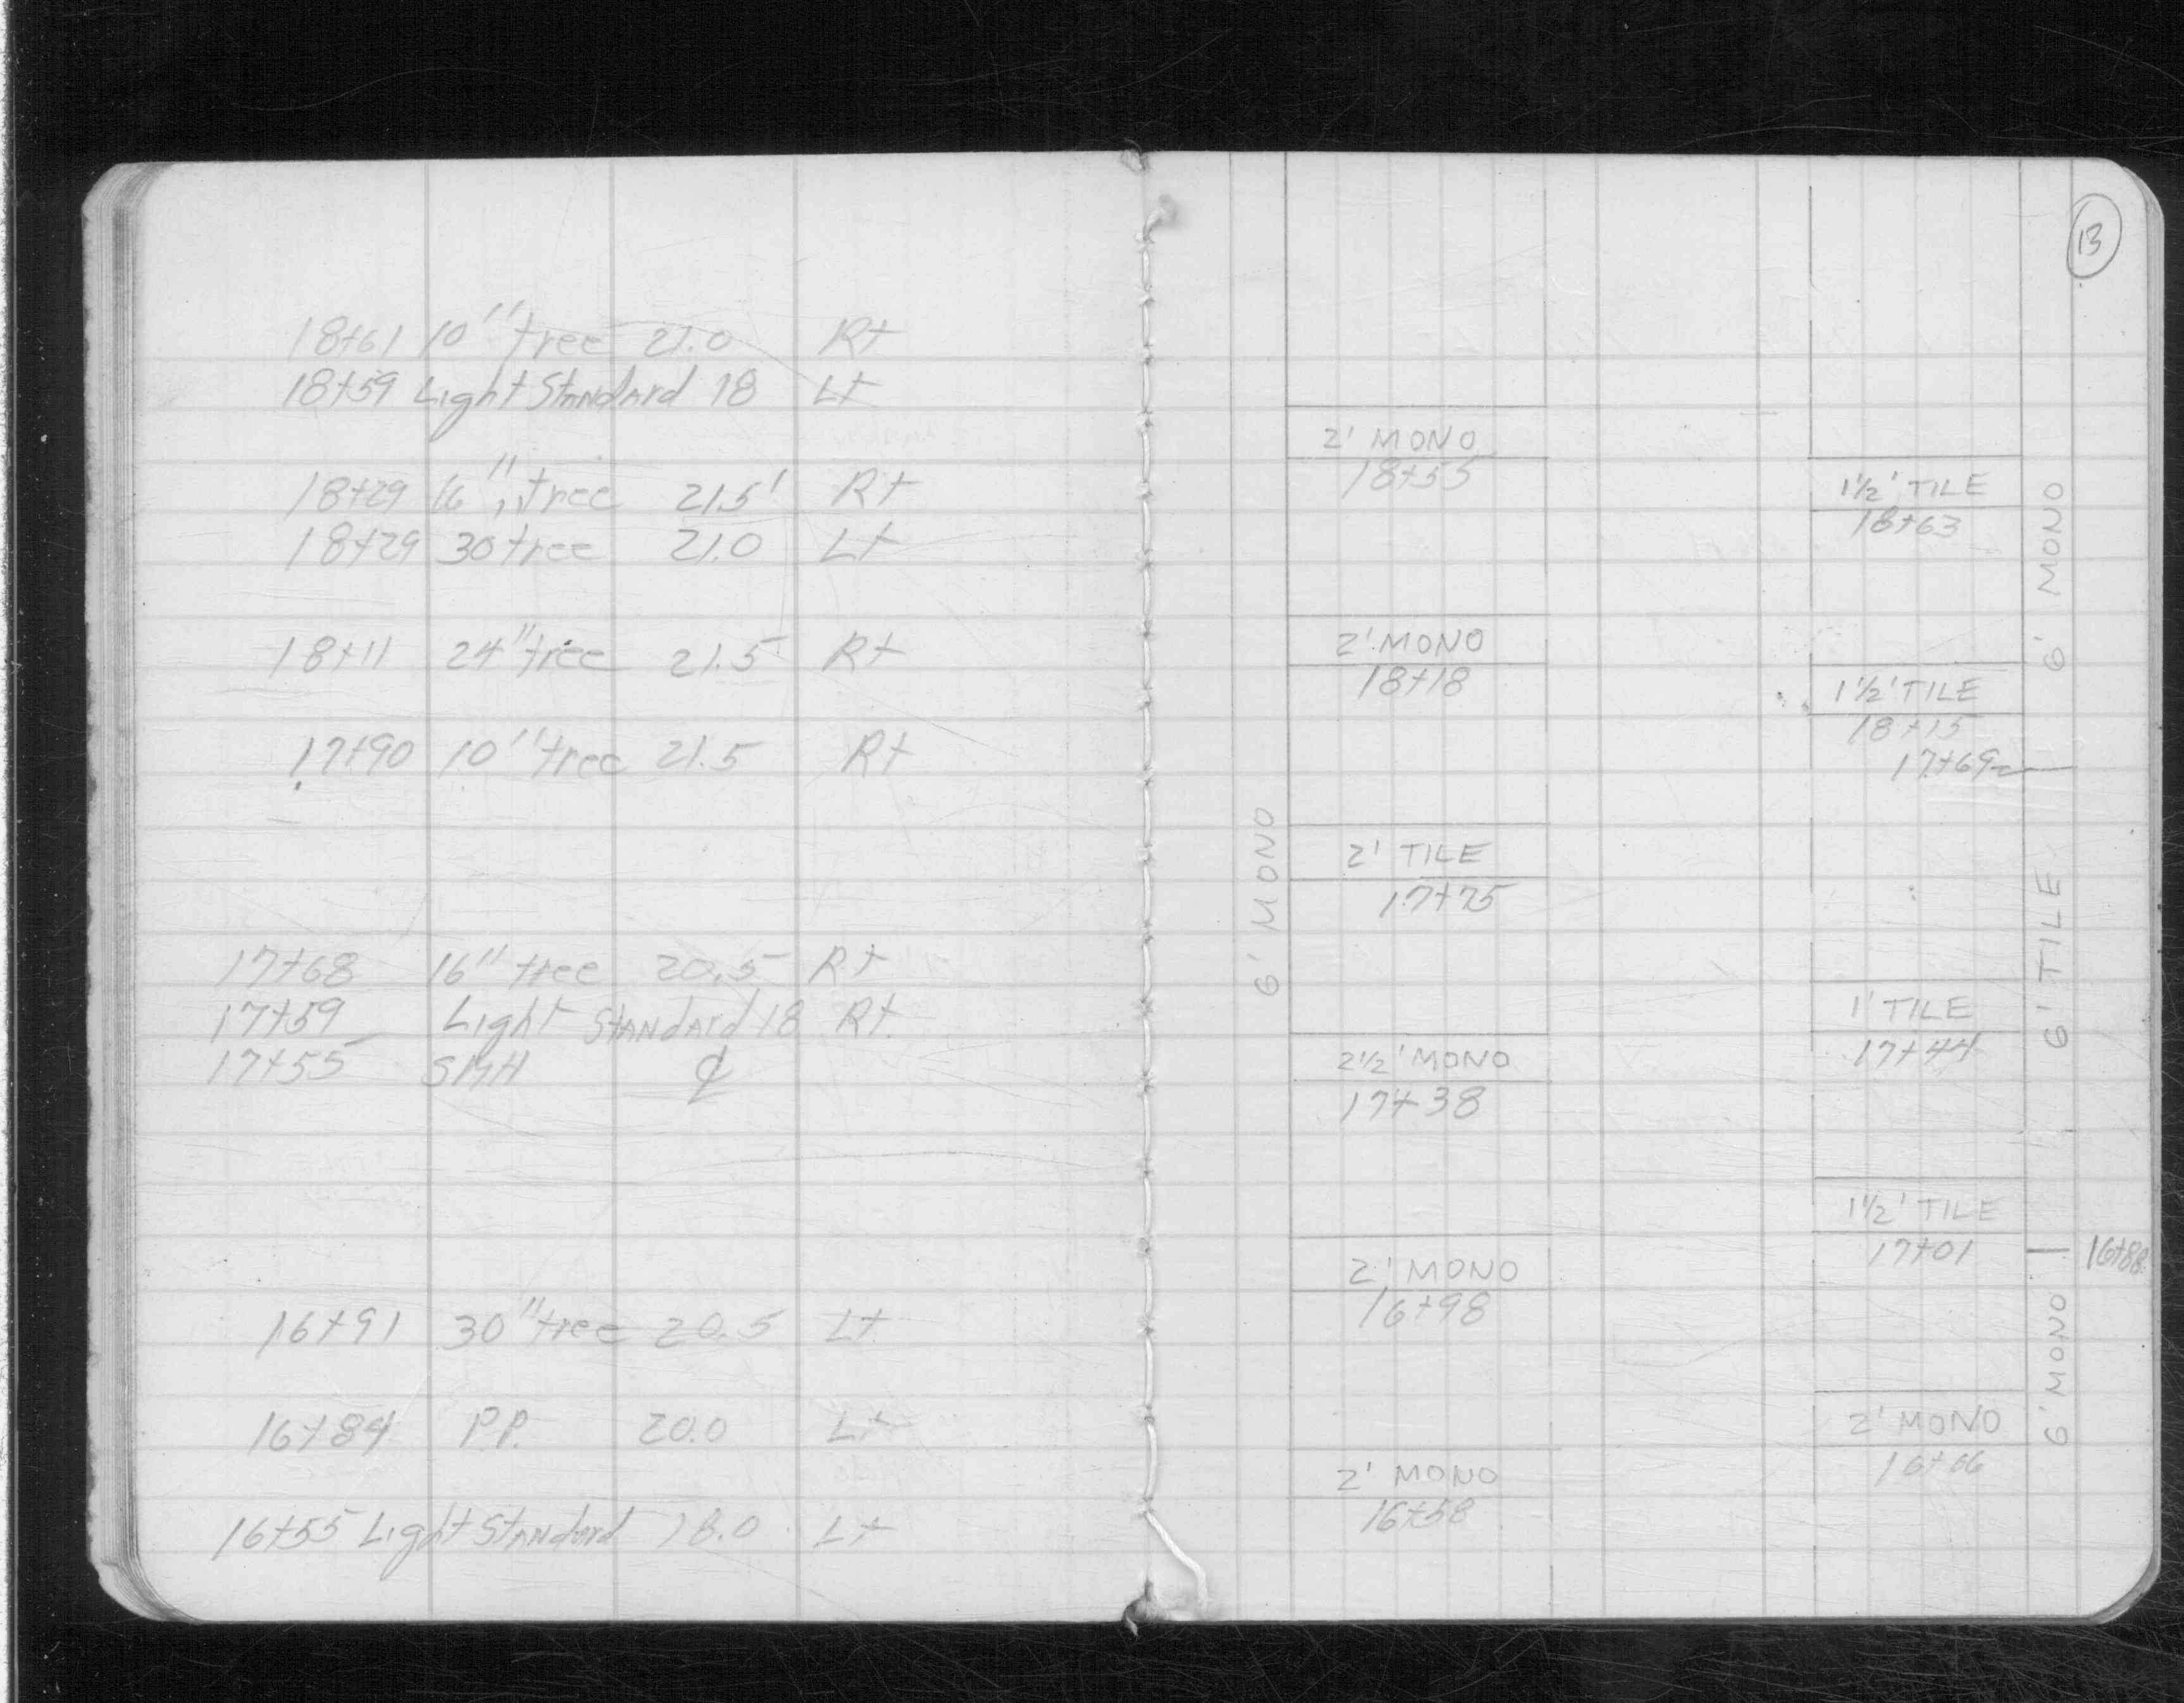 18+61 10" tree 21.0 Rt
18+59 Light Standard 18 Lt
18+29 16" tree 21.5' Rt
18+29 30 tree 21.0 Lt
18+11 24" tree 21.5 Rt
17+90 10" tree 21.5 Rt
17+68 16" tree 20.5 Rt
17+59 Light Standard 18 Rt.
17+55 SMH ₵
16+91 30" tree 20.5 Lt
16+84 P.P. 20.0 Lt
16+55 Light Standard 18.0 Lt
13
6' MONO
2' MONO
18+55
2' MONO
18+18
2' TILE
17+75
2½' MONO
17+38
2' MONO
16+98
2' MONO
16+58
1½' TILE
18+63
1½' TILE
18+15
17+69
1' TILE
17+44
1½' TILE
17+01
2' MONO
16+66
6' MONO
6' TILE
6' MONO
16+88